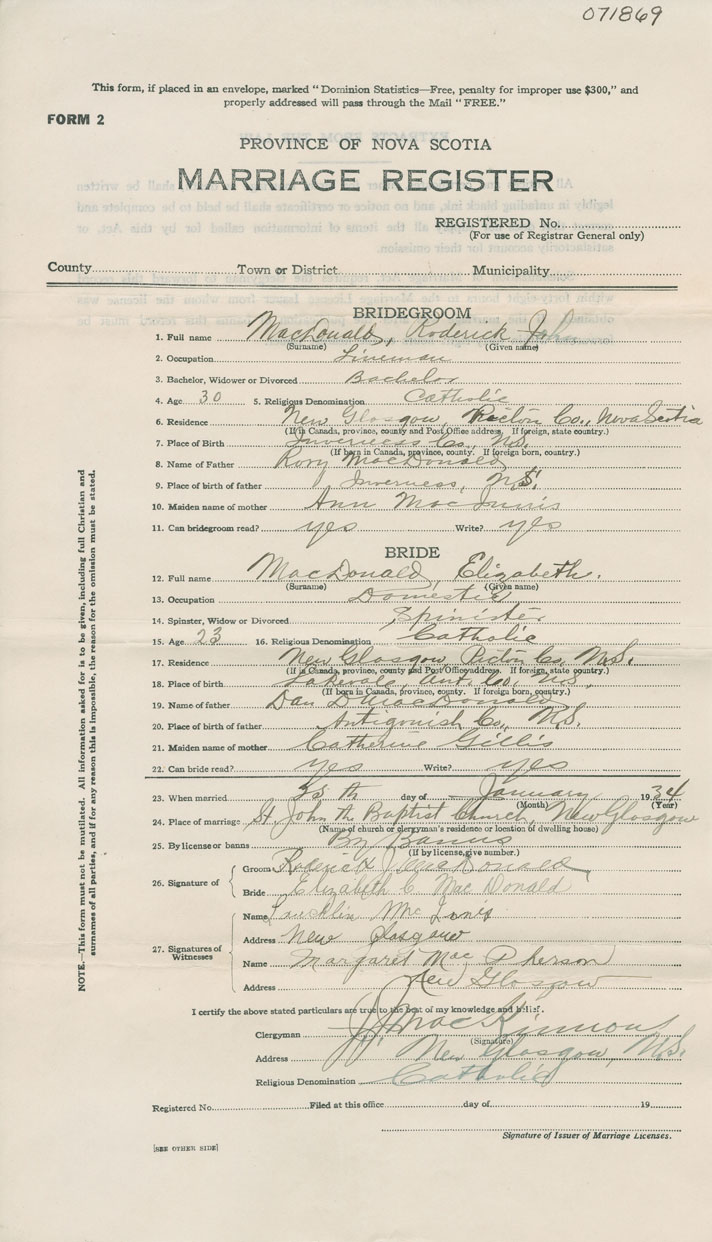 071869
This form, if placed in an envelope, marked "Dominion Statistics—Free, penalty for improper use $300," and
properly addressed will pass through the Mail "FREE."
FORM 2
PROVINCE OF NOVA SCOTIA
MARRIAGE REGISTER
REGISTERED No.
(For use of Registrar General only)
County Town or District Municipality
BRIDEGROOM
1. Full name MacDonald, Roderick John
(Surname) (Given name)
2. Occupation Lineman
3. Bachelor, Widower or Divorced Bachelor
4. Age 30 5. Religious Denomination Catholic
6. Residence New Glasgow, Pictou Co., Nova Scotia
(If in Canada, province, county and Post Office address. If foreign, state country.)
7. Place of Birth Inverness Co., N.S.
(If born in Canada, province, county. If foreign born, country.)
8. Name of Father Rory MacDonald
9. Place of birth of father Inverness, N.S.
10. Maiden name of mother Ann MacInnis
11. Can bridegroom read? yes Write? yes
BRIDE
12. Full name MacDonald, Elizabeth.
(Surname) (Given name)
13. Occupation Domestic
14. Spinster, Widow or Divorced Spinister
15. Age 23 16. Religious Denomination Catholic
17. Residence New Glasgow, Pictou Co., N.S.
(If in Canada, province, county and Post Office address. If foreign, state country.)
18. Place of birth Ant. Co., N.S.
(If born in Canada, province, county. If foreign born, country.)
19. Name of father Dan D MacDonald
20. Place of birth of father Antigonish Co., N.S.
21. Maiden name of mother Catherine Gillis
22. Can bride read? yes Write? yes
23. When married th day of January 1934
(Month) (Year)
24. Place of marriage St. John the Baptist Church, New Glasgow
(Name of church or clergyman's residence or location of dwelling house)
25. By license or banns By Banns
(If by license, give number.)
26. Signature of
Groom Roderick J MacDonald
Bride Elizabeth C MacDonald
27. Signatures of Witnesses
Name Lauchlin Mc Innis
Address New Glasgow
Name Margaret MacPherson
Address New Glasgow
I certify the above stated particulars are true to the best of my knowledge and belief.
Clergyman MacKinnon
(Signature)
Address New Glasgow, N.S.
Religious Denomination Catholic
Registered No. Filed at this office day of 19
Signature of Issuer of Marriage Licenses.
[SEE OTHER SIDE]
NOTE.—This form must not be mutilated. All information asked for is to be given, including full Christian and
surnames of all parties, and if for any reason this is impossible, the reason for the omission must be stated.